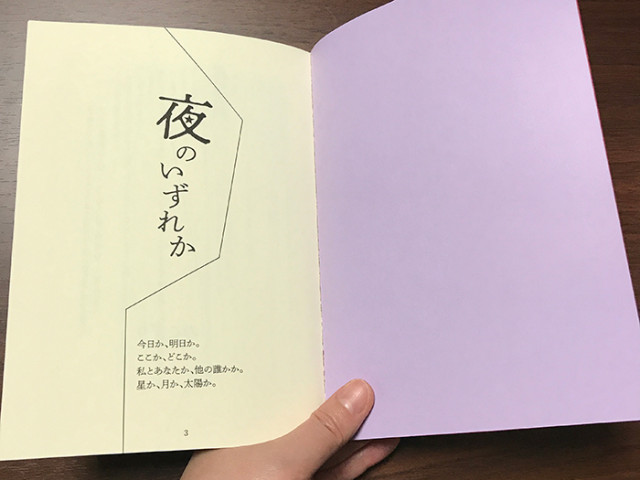 夜のいずれか
今日か、明日か。
ここか、どこか。
私とあなたか、他の誰かか。
星か、月か、太陽か。
3